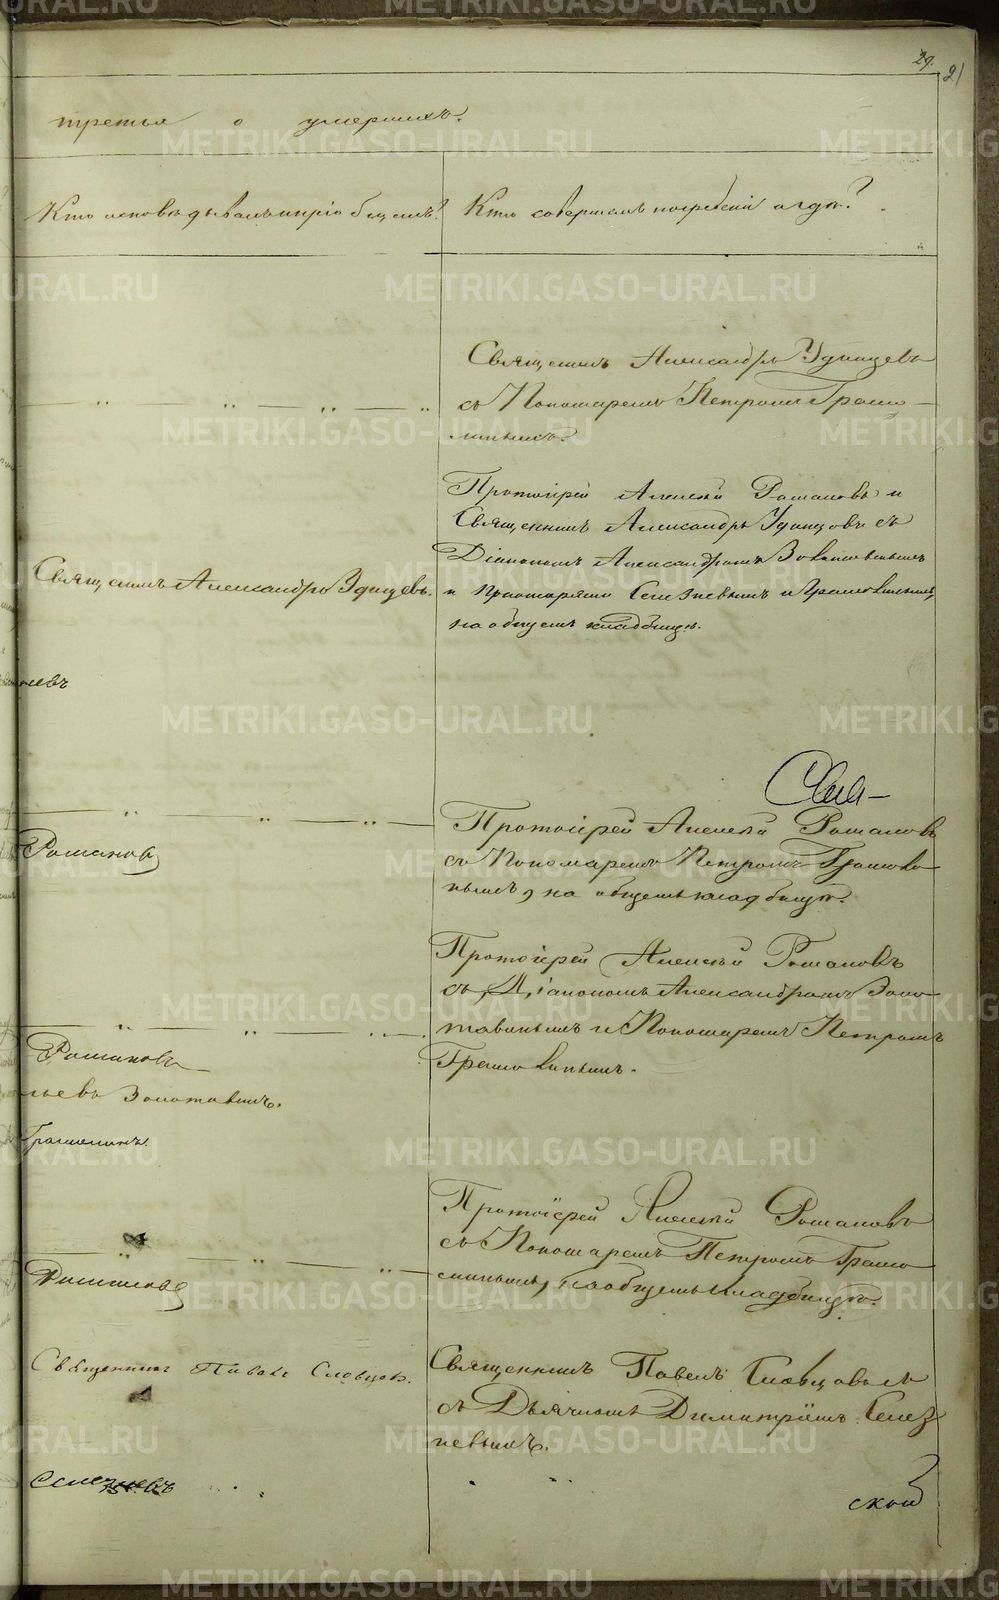 29.
21
третья о умершихъ.
Кто исповѣдывалъ и пріобщалъ?
Кто совершалъ погребеніе и гдѣ?
Священникъ Александръ Удинцевъ
съ Пономаремъ Петромъ Грамо-
линымъ.
Протоіерей Алексѣй Романовъ и
Священникъ Александръ Удинцовъ съ
Діакономъ Александромъ
Священникъ Александръ Удинцевъ.
и Пономарями Селезневымъ и
на общемъ кладбищѣ.
Протоіерей Алексѣй Романовъ
Романовъ
съ Пономаремъ Петромъ
на общемъ кладбищѣ.
Протоіерей Алексѣй Романовъ
съ Діакономъ Александромъ Золо-
тавинымъ и Пономаремъ Петромъ
Романовъ
Золотавинъ.
Протоіерей Алексѣй Романовъ
съ Пономаремъ Петромъ
на общемъ кладбищѣ.
Романовъ
Священникъ Павелъ Словцовъ.
Священникъ Павелъ Словцовъ
съ Дьячкомъ Димитріемъ Селез
невымъ.
Селезневъ
ской
METRIKI.GASO-URAL.RU